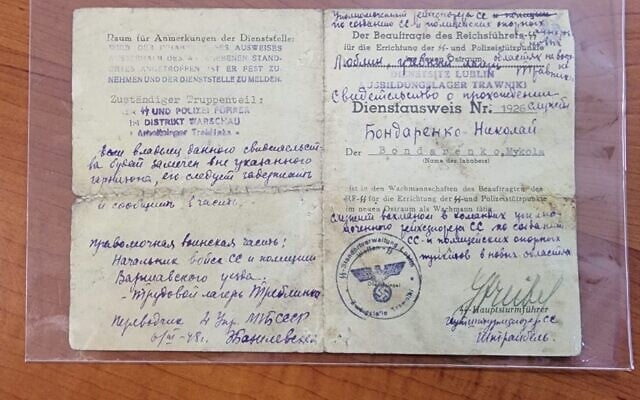 Raum für Anmerkungen der Dienststelle:
WIRD DER INHABER DES AUSWEISES
AUSSERHALB DES ANGEGEBENEN STAND-
ORTES ANGETROFFEN IST ER FEST ZU
NEHMEN UND DER DIENSTSTELLE ZU MELDEN.
Zuständiger Truppenteil:
DER SS UND POLIZEI FÜHRER
IM DISTRIKT WARSCHAU
- Arbeitslager Treblinka -
Если владелец данного свидетельст-
ва будет замечен вне указанного
гарнизона, его следует задержать
и сообщить в часть.
Правомочная воинская часть:
Начальник войск СС и полиции
Варшавского уезда.
- Трудовой лагерь Треблинка
Переводчик 2 Упр. МГБ СССР
Уполномоченный рейхсфюрера СС
по созданию СС- и полицейских опорных
Der Beauftragte des Reichsführers-SS
für die Errichtung der SS- und Polizeistützpunkte
Ostraum
областях на вос-
Люблин, учебный лагерь
DIENSTSITZ LUBLIN
AUSBILDUNGSLAGER TRAWNIKI
Свидетельство о прохождении
Dienstausweis Nr. 1926 службы
Бондаренко Николай
Der Bondarenko, Mykola
(Name des Inhabers)
ist in den Wachmannschaften des Beauftragten des
RF-SS für die Errichtung der SS- und Polizeistützpunkte
im neuen Ostraum als Wachmann tätig.
служит вахманом в командах уполно-
моченного рейхсфюрера СС по созданию
СС- и полицейских опорных
пунктов в новых областях
SS-Standortverwaltung Lublin
Zweigstelle Trawniki
Streibel
SS-Hauptsturmführer
Гауптштурмфюрер СС
Штрайбель.